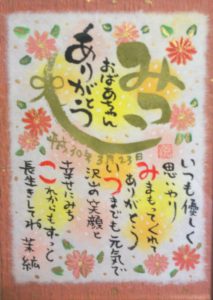 みつ
おばあちゃん
ありがとう
平成30年3月23日
いつも優しく
思いやり
みまもってくれて
ありがとう
いつまでも元気で
沢山の笑顔と
幸せにみち
これからもずっと
長生きしてね